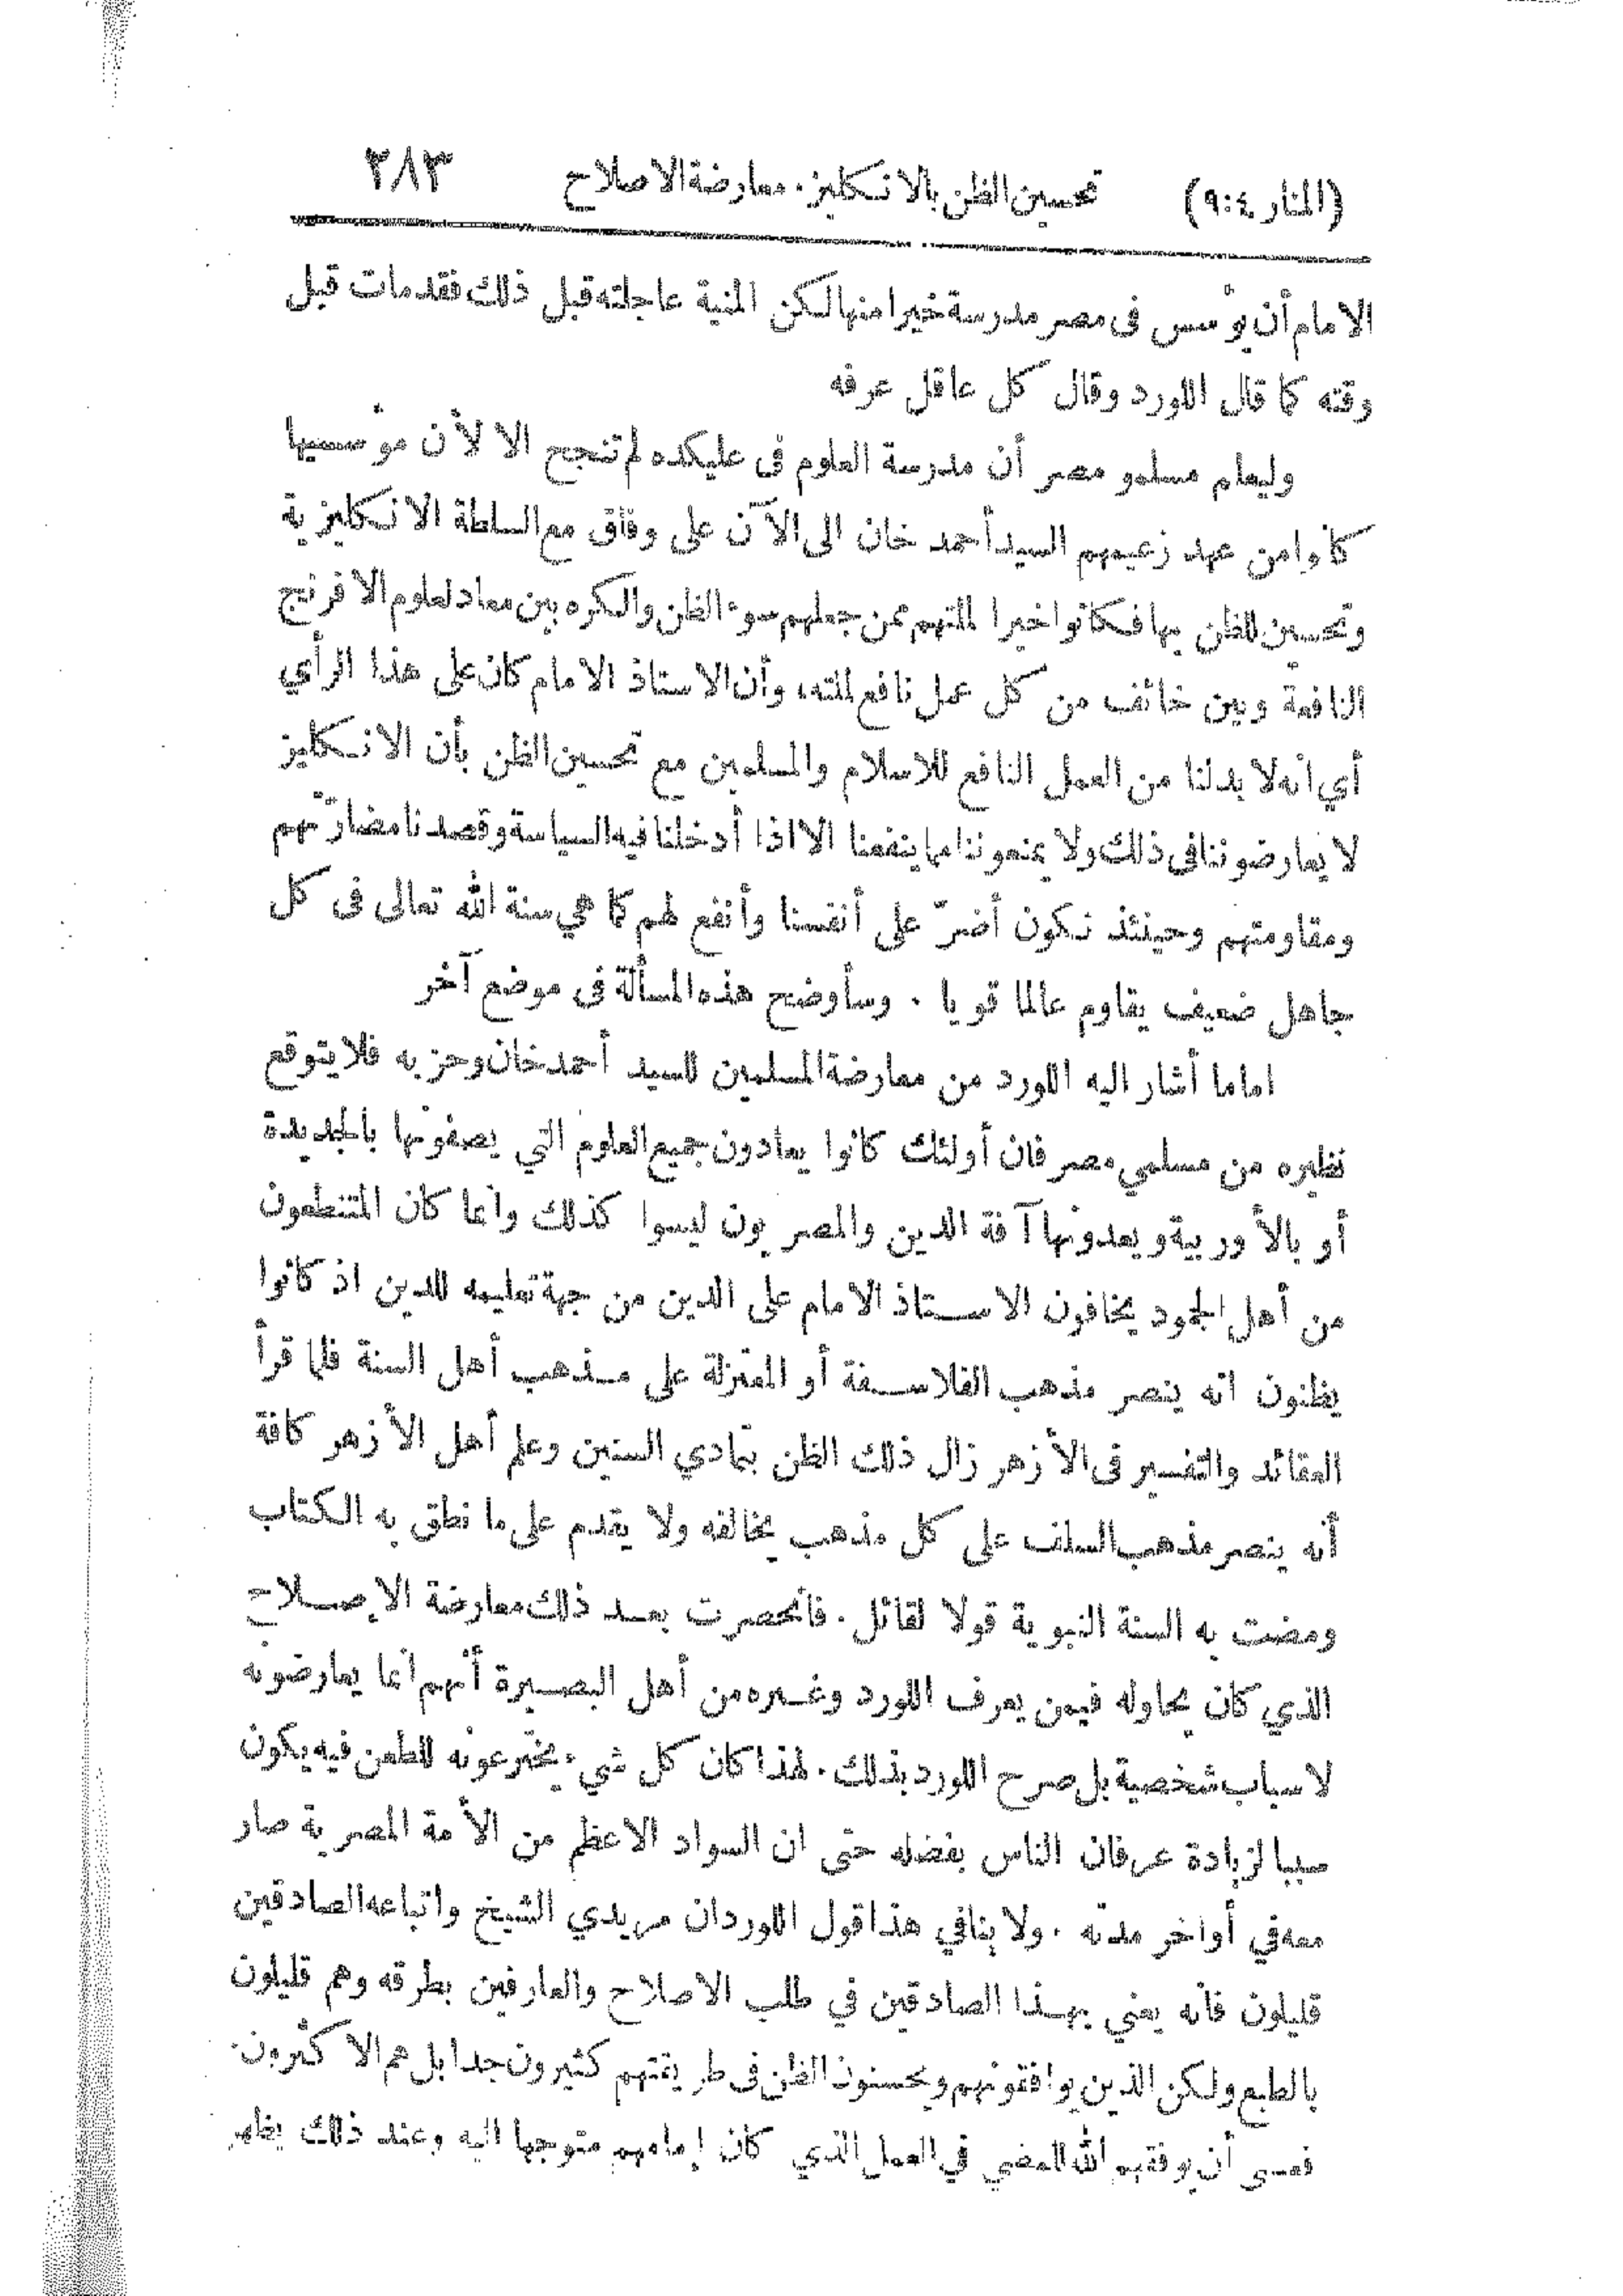 (المنار ٩:٤) تحسين الظن بالانكليز. معارضة الاصلاح ٢٨٣
الامام أن يؤسس فى مصر مدرسة خيرا منها لكن المنية عاجلته قبل ذلك فقد مات قبل
وقته كما قال اللورد وقال كل عاقل عرفه
وليعلم مسلمو مصر أن مدرسة العلوم فى عليكده لم تنجح الا لأن مؤسسيها
كانوا من عهد زعيمهم السيد أحمد خان الى الآن على وفاق مع السلطة الانكليزية
وتحسين للظن بها فكانوا خيرا لملتهم ممن جعلهم سوء الظن والكره بين معاد لعلوم الافرنج
النافعة وبين خائف من كل عمل نافع لملته، وأن الاستاذ الامام كان على هذا الرأي
أي انه لا بد لنا من العمل النافع للاسلام والمسلمين مع تحسين الظن بأن الانكليز
لا يعارضوننا فى ذلك ولا يمنعوننا مما ينفعنا الا اذا أدخلنا فيه السياسة وقصدنا مضارّتهم
ومقاومتهم وحينئذ نكون أضرّ على أنفسنا وأنفع لهم كما هي سنة الله تعالى فى كل
جاهل ضعيف يقاوم عالما قويا . وسأوضح هذه المسألة فى موضع آخر
اما ما أشار اليه اللورد من معارضة المسلمين للسيد أحمد خان وحزبه فلا يتوقع
نظيره من مسلمي مصر فان أولئك كانوا يعادون جميع العلوم التي يصفونها بالجديدة
أو بالأوربية ويعدونها آفة الدين والمصريون ليسوا كذلك وانما كان المتنطعون
من أهل الجمود يخافون الاستاذ الامام على الدين من جهة تعليمه للدين اذ كانوا
يظنون انه ينصر مذهب الفلاسفة أو المعتزلة على مذهب أهل السنة فلما قرأ
العقائد والتفسير فى الأزهر زال ذلك الظن بتمادي السنين وعلم أهل الأزهر كافة
أنه ينصر مذهب السلف على كل مذهب يخالفه ولا يقدم على ما نطق به الكتاب
ومضت به السنة النبوية قولا لقائل . فانحصرت بعد ذلك معارضة الإصلاح
الذي كان يحاوله فيمن يعرف اللورد وغيره من أهل البصيرة أنهم انما يعارضونه
لاسباب شخصية بل صرح اللورد بذلك . لهذا كان كل شيء يخترعونه للطعن فيه يكون
سببا لزيادة عرفان الناس بفضله حتى ان السواد الاعظم من الأمة المصرية صار
معه في أواخر مدته . ولا ينافي هذا قول اللورد ان مريدي الشيخ واتباعه الصادقين
قليلون فانه يعني بهذا الصادقين في طلب الاصلاح والعارفين بطرقه وهم قليلون
بالطبع ولكن الذين يوافقونهم ويحسنون الظن فى طريقتهم كثيرون جدا بل هم الاكثرون.
فعسى أن يوفقهم الله للمضي في العمل الذي كان إمامهم متوجها اليه وعند ذلك يظهر